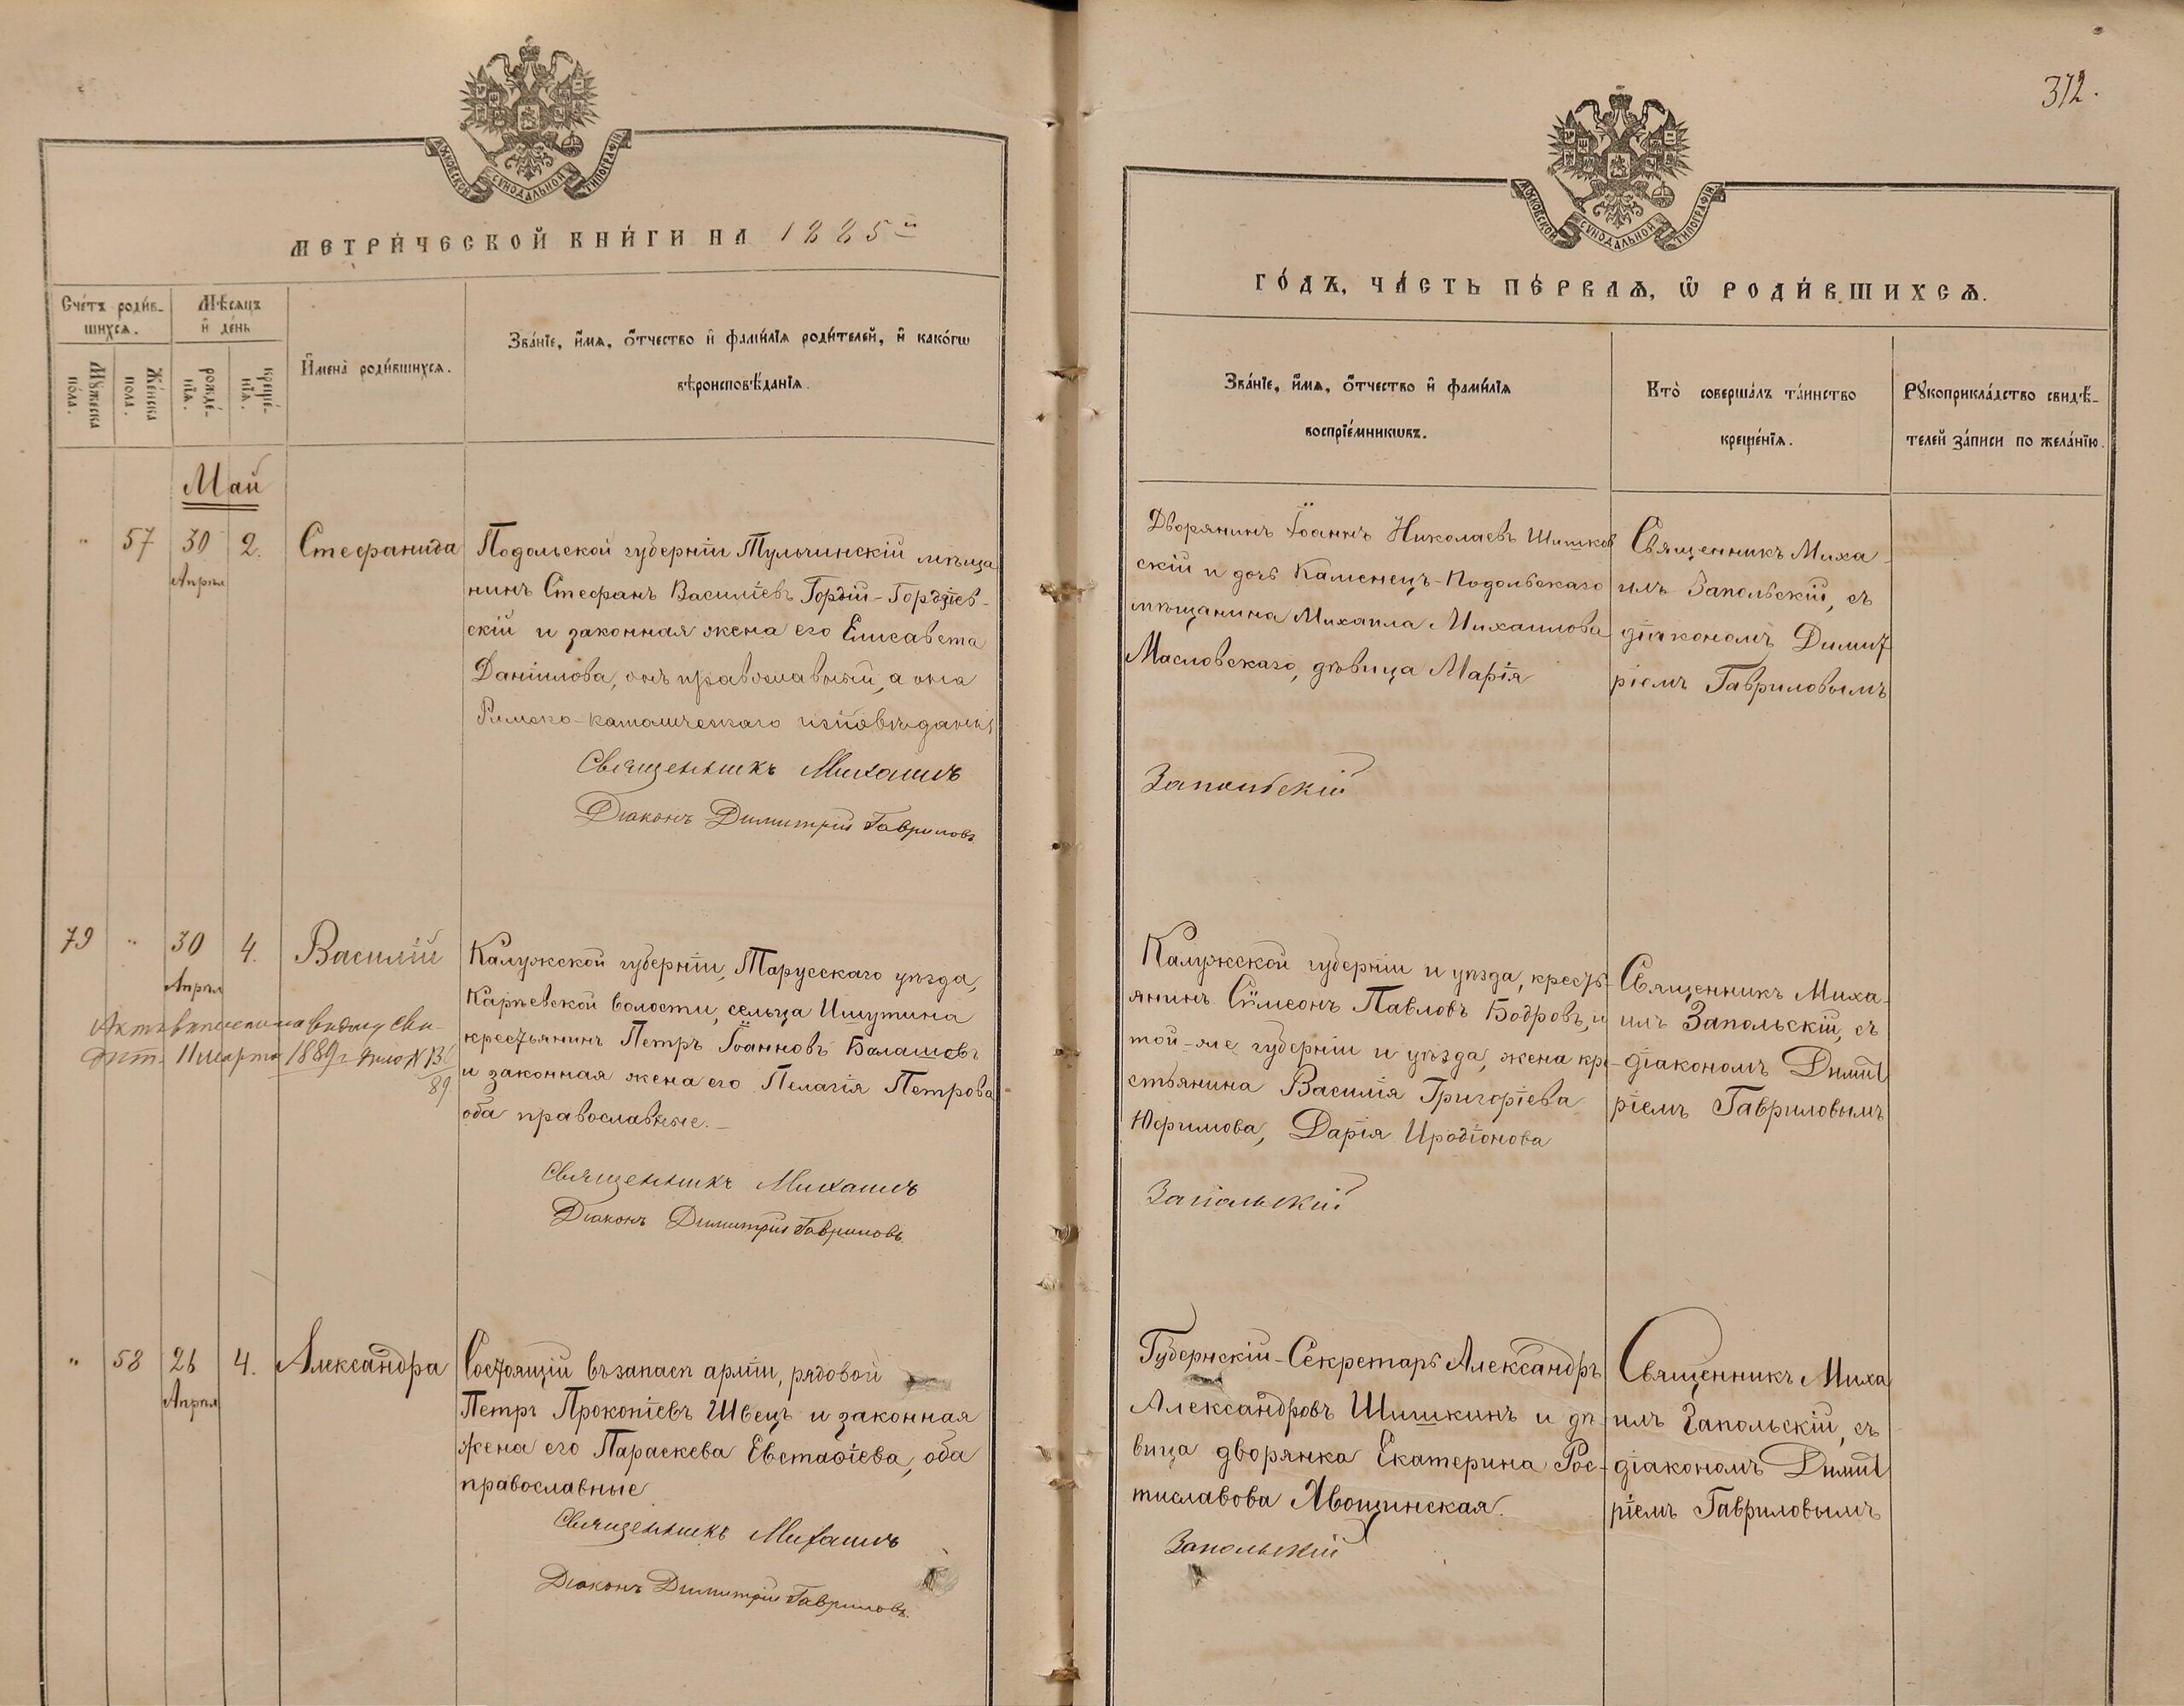 372.
МОСКОВСКОЙ СѴНОДАЛЬНОЙ ТИПОГРАФІИ
МЕТРИ́ЧЕСКОЙ КНИ́ГИ НА 1885й
Сче́тъ роди́в-
шихсѧ.
Мѣ́сѧцъ
и҆ де́нь
Мꙋ́жеска
по́ла.
Же́нска
по́ла.
рожде́-
нїѧ.
креще́-
нїѧ.
И҆мена̀ роди́вшихсѧ.
Зва́нїе, и҆́мѧ, ѻ҆́тчество и҆ фами́лїѧ роди́телей, и҆ како́гѡ
вѣроисповѣ́данїѧ.
Май
" 57 30 2. Стефанида
Апрѣл
Подольской губерніи Тульчинскій мѣща
нинъ Стефанъ Василіевъ Гордій-Гордзіев-
скій и законная жена его Елисавета
Даніилова, онъ православный, а она
Римско-католическаго исповѣданія
Священникъ Михаилъ
Діаконъ Димитрій Гавриловъ
79 " 30 4. Василій
Апрѣл
Актъ выписи на видму сви-
11 марта 1889 г дѣло N
89
Калужской губерніи, Тарусскаго уѣзда,
Карѣевской волости, сельца Ишутина
крестьянинъ Петръ Іоанновъ Балашовъ
и законная жена его Пелагія Петрова
оба православные.-
Священникъ Михаилъ
Діаконъ Димитрій Гавриловъ
" 58 26 4. Александра
Апрѣл
Состоящій въ запасѣ арміи, рядовой
Петръ Прокопіевъ Швецъ и законная
жена его Параскева Евстафіева, оба
православные
Священникъ Михаилъ
Діаконъ Димитрій Гавриловъ.
МОСКОВСКОЙ СѴНОДАЛЬНОЙ ТИПОГРАФІИ
ГО́ДЪ, ЧА́СТЬ ПЕ́РВАѦ, Ѽ РОДИ́ВШИХСѦ.
Зва́нїе, и҆́мѧ, ѻ҆́тчество и҆ фами́лїѧ
воспрїе́мникѡвъ.
Кто̀ соверша́лъ та́инство
креще́нїѧ.
Рꙋкоприкла́дство свидѣ́-
телей за́писи по жела́нїю.
Дворянинъ Іоаннъ Николаевъ Шишков
скій и дочь Каменецъ-Подольскаго
мѣщанина Михаила Михаилова
Масловскаго, дѣвица Марія
Запольскій
Священникъ Миха-
илъ Запольскій, съ
діакономъ Димит
ріемъ Гавриловымъ
Калужской губерніи и уѣзда, кресть-
янинъ Сѵмеонъ Павловъ Бодровъ, и
той-же губерніи и уѣзда, жена кре-
стьянина Василія Григоріева
Юфимова, Дарія Иродіонова
Запольскій
Священникъ Миха-
илъ Запольскій, съ
діакономъ Димит
ріемъ Гавриловымъ
Губернскій-Секретарь Александръ
Александровъ Шишкинъ и дѣ-
вица дворянка Екатерина Рос-
тиславова Хвощинская.
Запольскій
Священникъ Миха
илъ Запольскій, съ
діакономъ Димит
ріемъ Гавриловымъ